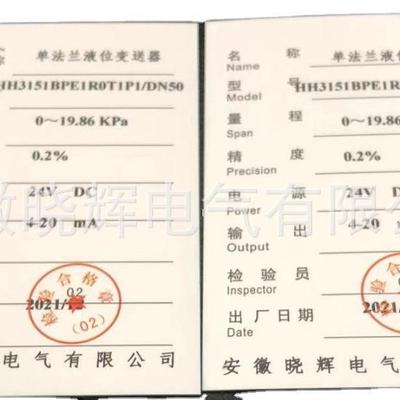 单法兰液位变送器
HH3151BPE1R0T1P1/DN50
0～19.86 KPa
0.2%
24V DC
4-20 mA
检验合格章
02
2021/
(02)
电气有限公司
名称 单法兰液位
Name
型号 HH3151BPE1R
Model
量程 0～19.86
Span
精度 0.2%
Precision
电源 24V D
Power
输出 4-20
Output
检验员
Inspector
出厂日期 2021/
Date
安徽晓辉电气
徽晓辉电气有限公